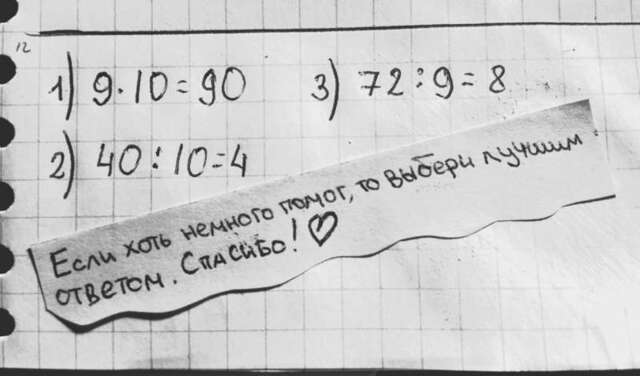 12
1) 9·10=90
3) 72:9=8
2) 40:10=4
Если хоть немного помог, то выбери лучшим
ответом. Спасибо! ♡